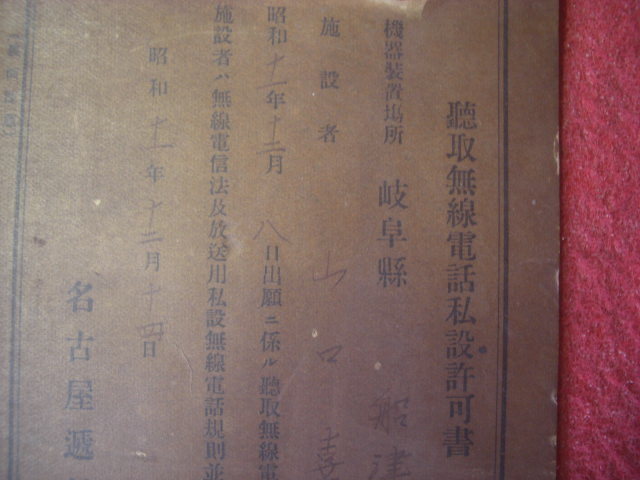 聽取無線電話私設許可書
機器裝置塲所 岐阜縣 船津
施設者 山口喜
昭和十一年十二月八日出願ニ係ル聽取無線電
施設者ハ無線電信法及放送用私設無線電話規則並
昭和十一年十二月十四日
名古屋遞